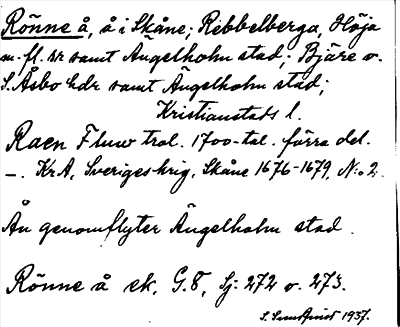 Rönne å, å i Skåne; Rebbelberga, Höja
m. fl. sr samt Ängelholm stad; Bjäre o.
S. Åsbo hdr samt Ängelholm stad;
Kristianstads l.
Raen Fluw trol. 1700-tal. förra del.
–. KrA, Sveriges krig, Skåne 1676-1679, N:o 2.
Ån genomflyter Ängelholm stad.
Rönne å ek. G.8, Sj: 272 o. 273.
1937.